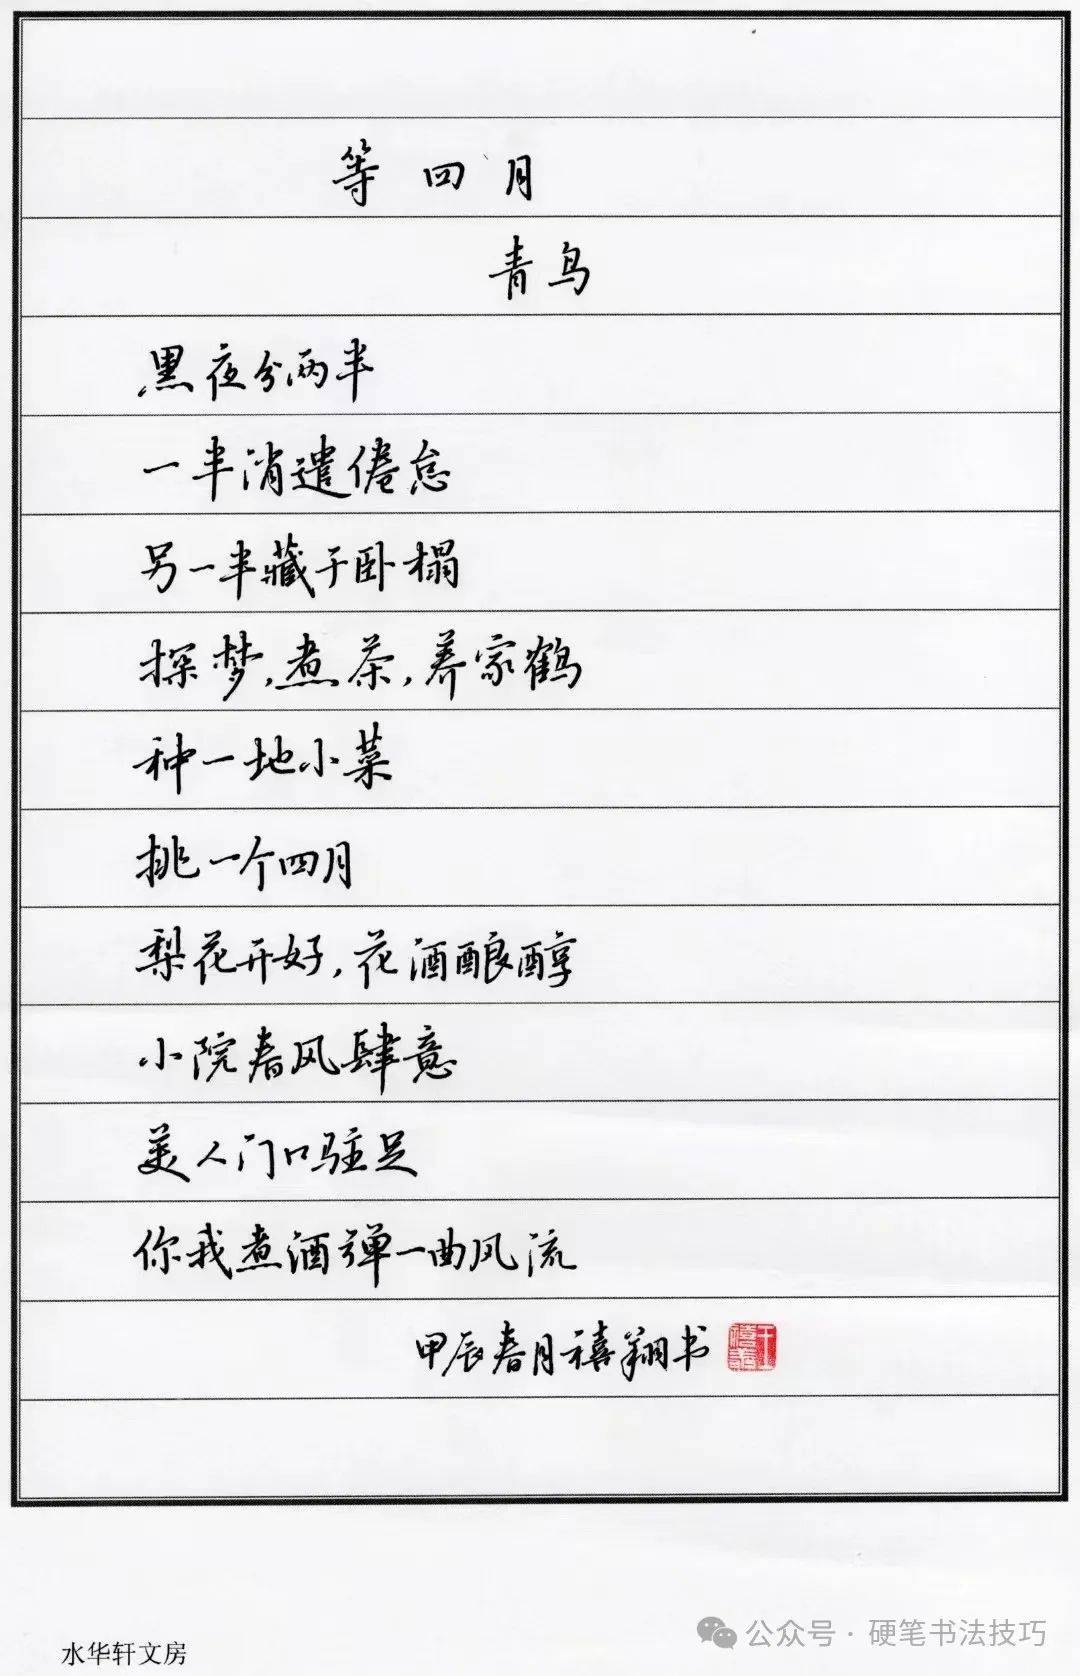 等四月
青鸟
黑夜分两半
一半消遣倦怠
另一半藏于卧榻
探梦，煮茶，养家鹤
种一地小菜
挑一个四月
梨花开好，花酒酿醇
小院春风肆意
美人门口驻足
你我煮酒弹一曲风流
甲辰春月禧翔书
水华轩文房
公众号·硬笔书法技巧